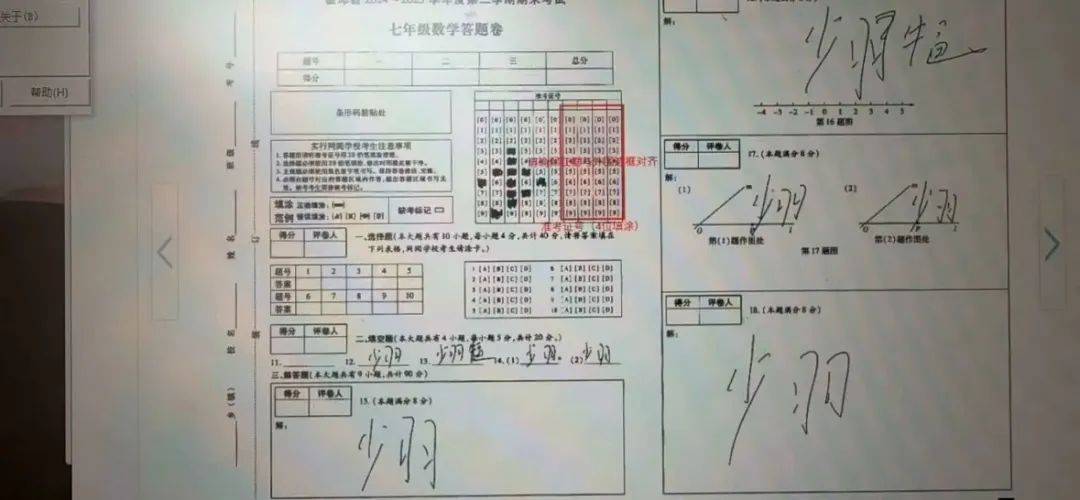 关于(B)
帮助(H)
七年级数学答题卷
题号 一 二 三 总分
得分
条形码粘贴处
准考证号
实行网阅学校考生注意事项
填涂 正确填涂:
范例 错误填涂:
缺考标记
准考证号(4位填涂)
得分 评卷人
一、选择题(本大题共有10小题,每小题4分,共计40分,请将答案填在
下列表格,网阅学校考生请涂卡。)
题号 1 2 3 4 5
答案
题号 6 7 8 9 10
答案
1 [A] [B] [C] [D] 6 [A] [B] [C] [D]
2 [A] [B] [C] [D] 7 [A] [B] [C] [D]
3 [A] [B] [C] [D] 8 [A] [B] [C] [D]
4 [A] [B] [C] [D] 9 [A] [B] [C] [D]
5 [A] [B] [C] [D] 10 [A] [B] [C] [D]
得分 评卷人
二、填空题(本大题共有4小题,每小题5分,共计20分。)
11. 12. 少羽 13. 少羽 14. (1) 少羽 。(2) 少羽
三、解答题(本大题共有9小题,共计90分)
得分 评卷人
15. (本题满分8分)
解:
少羽
乡(镇) 校名 姓名 班级 考号
装 订 线
解:
少羽牛逼
-4 -3 -2 -1 0 1 2 3 4 5
第16题图
得分 评卷人
17. (本题满分8分)
解:
(1) 少羽 (2) 少羽
第(1)题作图处 第(2)题作图处
第17题图
得分 评卷人
18. (本题满分8分)
解:
少羽